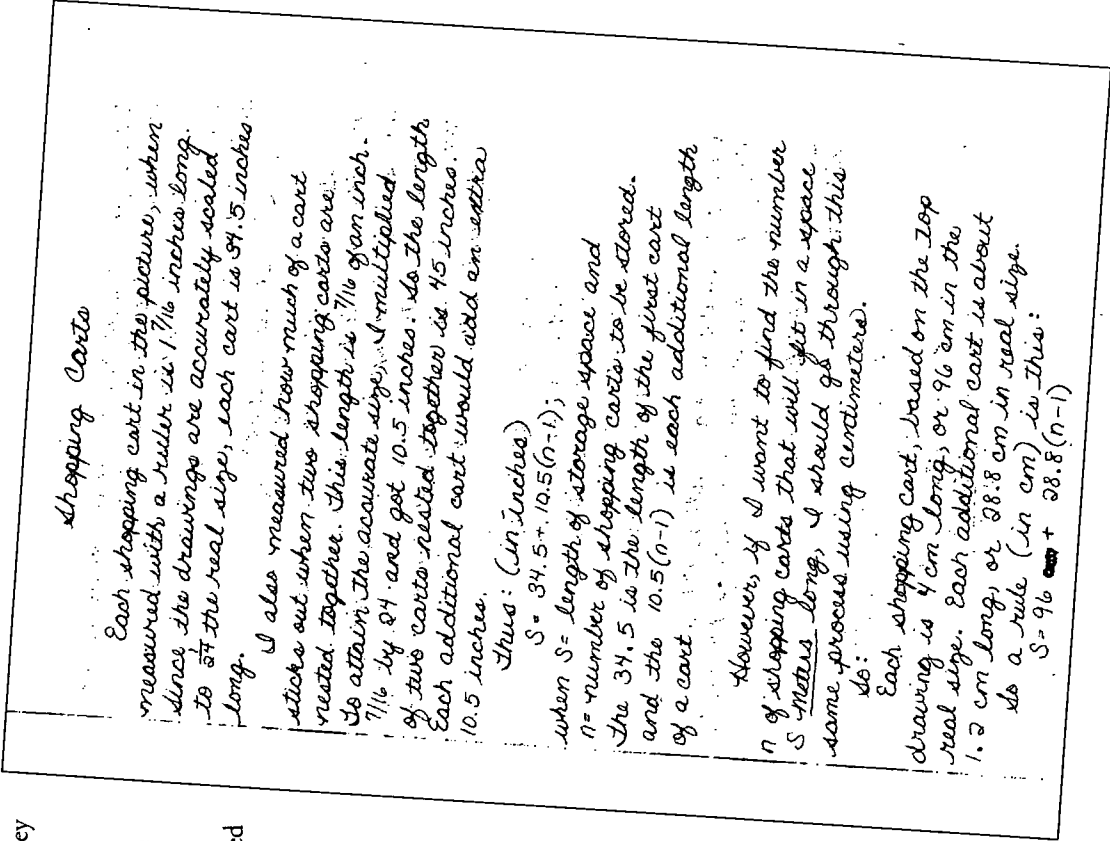 ey
ed
Shopping Carts
Each shopping cart in the picture, when
measured with a ruler is 1 7/16 inches long.
Since the drawings are accurately scaled
to 1/24 the real size, each cart is 34.5 inches
long.
I also measured how much of a cart
sticks out when two shopping carts are
nested together. This length is 7/16 of an inch.
To attain the accurate size, I multiplied
7/16 by 24 and got 10.5 inches. So the length
of two carts nested together is 45 inches.
Each additional cart would add an extra
10.5 inches.
Thus: (in inches)
S = 34.5 + 10.5(n-1);
when S = length of storage space and
n = number of shopping carts to be stored.
The 34.5 is the length of the first cart
and the 10.5(n-1) is each additional length
of a cart.
However, if I want to find the number
n of shopping carts that will fit in a space
S meters long, I should go through this
same process using centimeters.
So:
Each shopping cart, based on the top
drawing is 4 cm long, or 96 cm in the
real size. Each additional cart is about
1.2 cm long, or 28.8 cm in real size.
So a rule (in cm) is this:
S = 96 + 28.8(n-1)